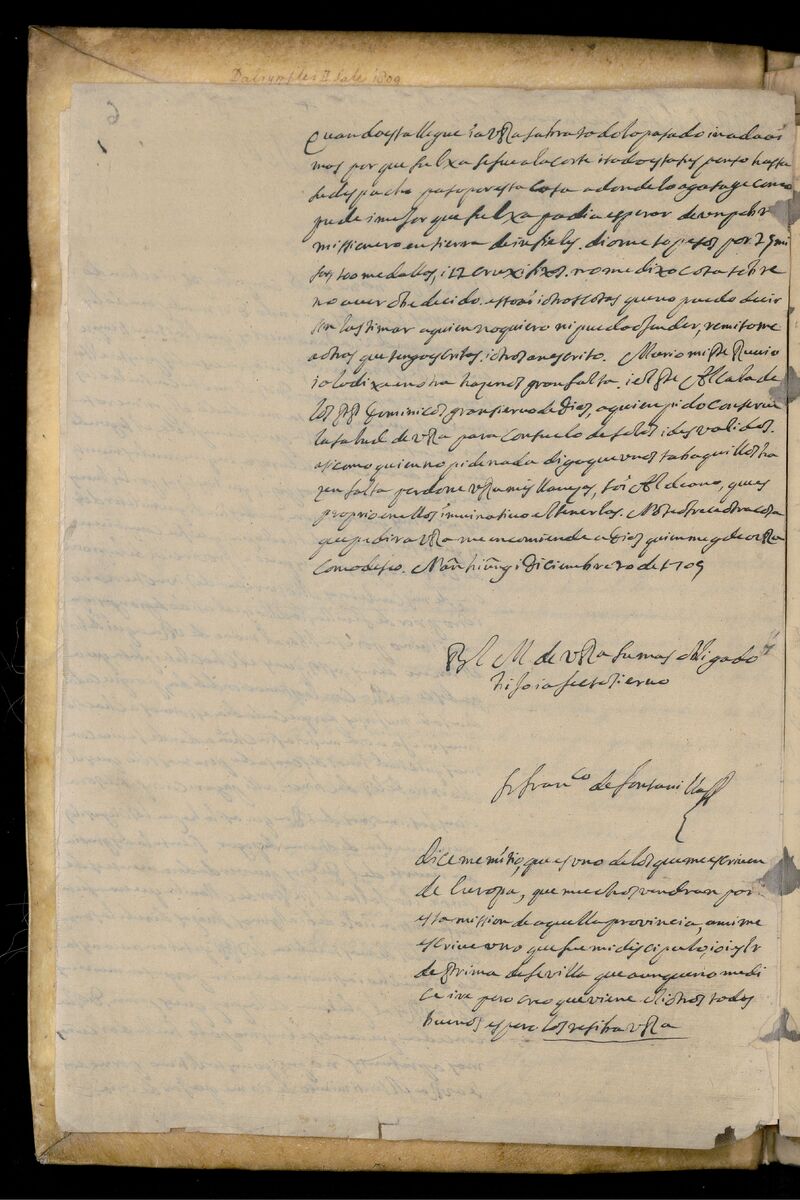 Dalrymples II Sale 1809
6
Quando esta llegue a VRa sabra todo lo pasado
mas por que fr Lxa se fue a la corte i todo esta suspenso hasta
su despacho paso por esta casa adonde lo agasaje como
pude i mejor que fr Lxa podia esperar de un pobre
missionero en tierra de infieles. diome 50 pesos por 25 mi
sas, 100 medallas, i 12 cruxifixos. no me dixo cosa sobre
no aver obedecido. estoas i otras cosas que no puedo decir
sin lastimar a quien no quiero ni puedo ofender, remitome
a otras que tengo escritas i otros an escrito.
io lo dixa en otra hazenos gran falta. i el Pe Alcala de
los PP Dominicos gran siervo de Dios, a quien pido conserve
la salud de VRa para consuelo de solos i desvalidos.
asi como quien no pide nada digo que unos tabaquillos ha
zen falta perdone VRa mis llanezas, soi Aldeano, que es
proprio en ellos i mui nativo el tenerlas. No se ofrece otra cosa
que pedir a VRa me encomiende a Dios quien me gde a VRa
como deseo. Nan hiung i Diciembre 20 de 1709
B L M de VRa su mas obligado
hijo ia fecto siervo
fr franco de fontanillas
Dice me mi tio, que es uno de los que me escriven
de Europa, que muchos vendran por
esta mission de aquella provincia, a mi me
escrive uno que fue mi discipulo, i oi es lr
de Prima de Sevilla que aunque no me di
ce ire pero creo que viene el i otros todos
buenos espero los resiba VRa